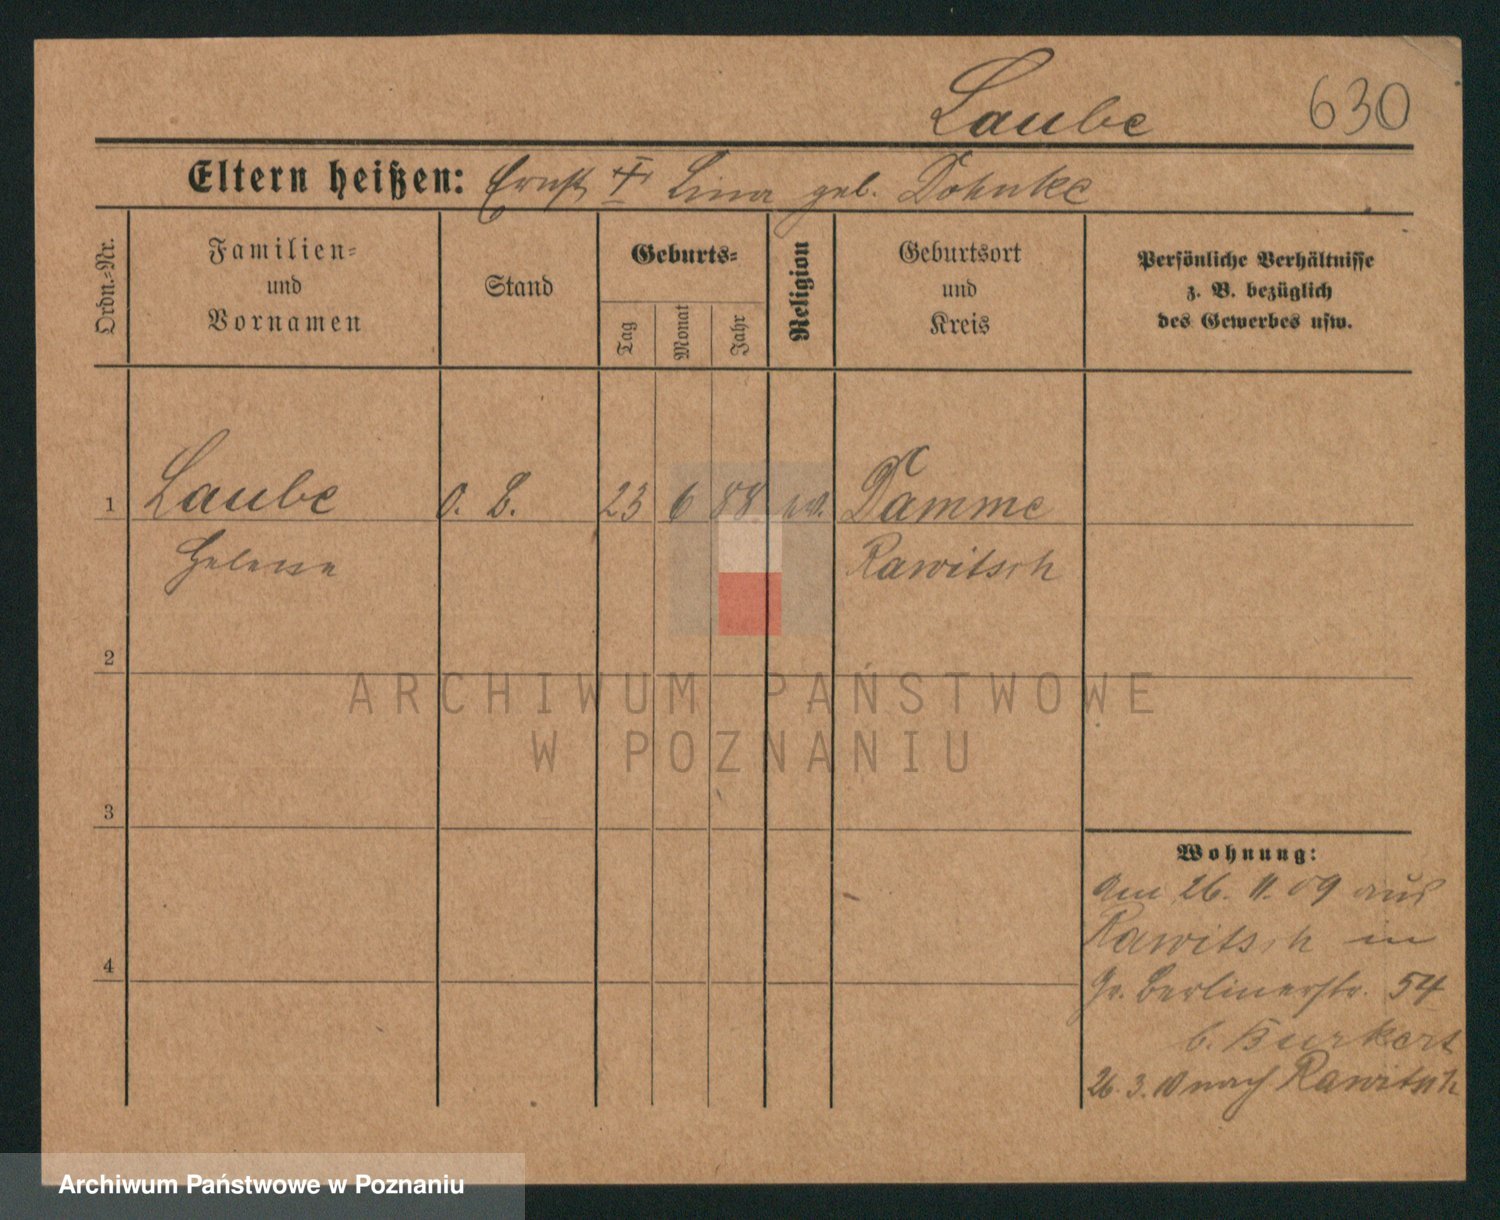 Laube 630
Eltern heißen: Ernst † Lina geb. Dohnke
Ordn.-Nr.
Familien-
und
Vornamen
Stand
Geburts-
Tag
Monat
Jahr
Religion
Geburtsort
und
Kreis
Persönliche Verhältnisse
z. B. bezüglich
des Gewerbes usw.
1 Laube o. B. 23 6 88 ev. Damme
Helene Rawitsch
2
3
4
Wohnung:
Am 26. 11. 09 aus
Rawitsch in
Gr. Berlinerstr. 54
b. Burkert
26. 3. 10 nach Rawitsch
ARCHIWUM PAŃSTWOWE
W POZNANIU
Archiwum Państwowe w Poznaniu